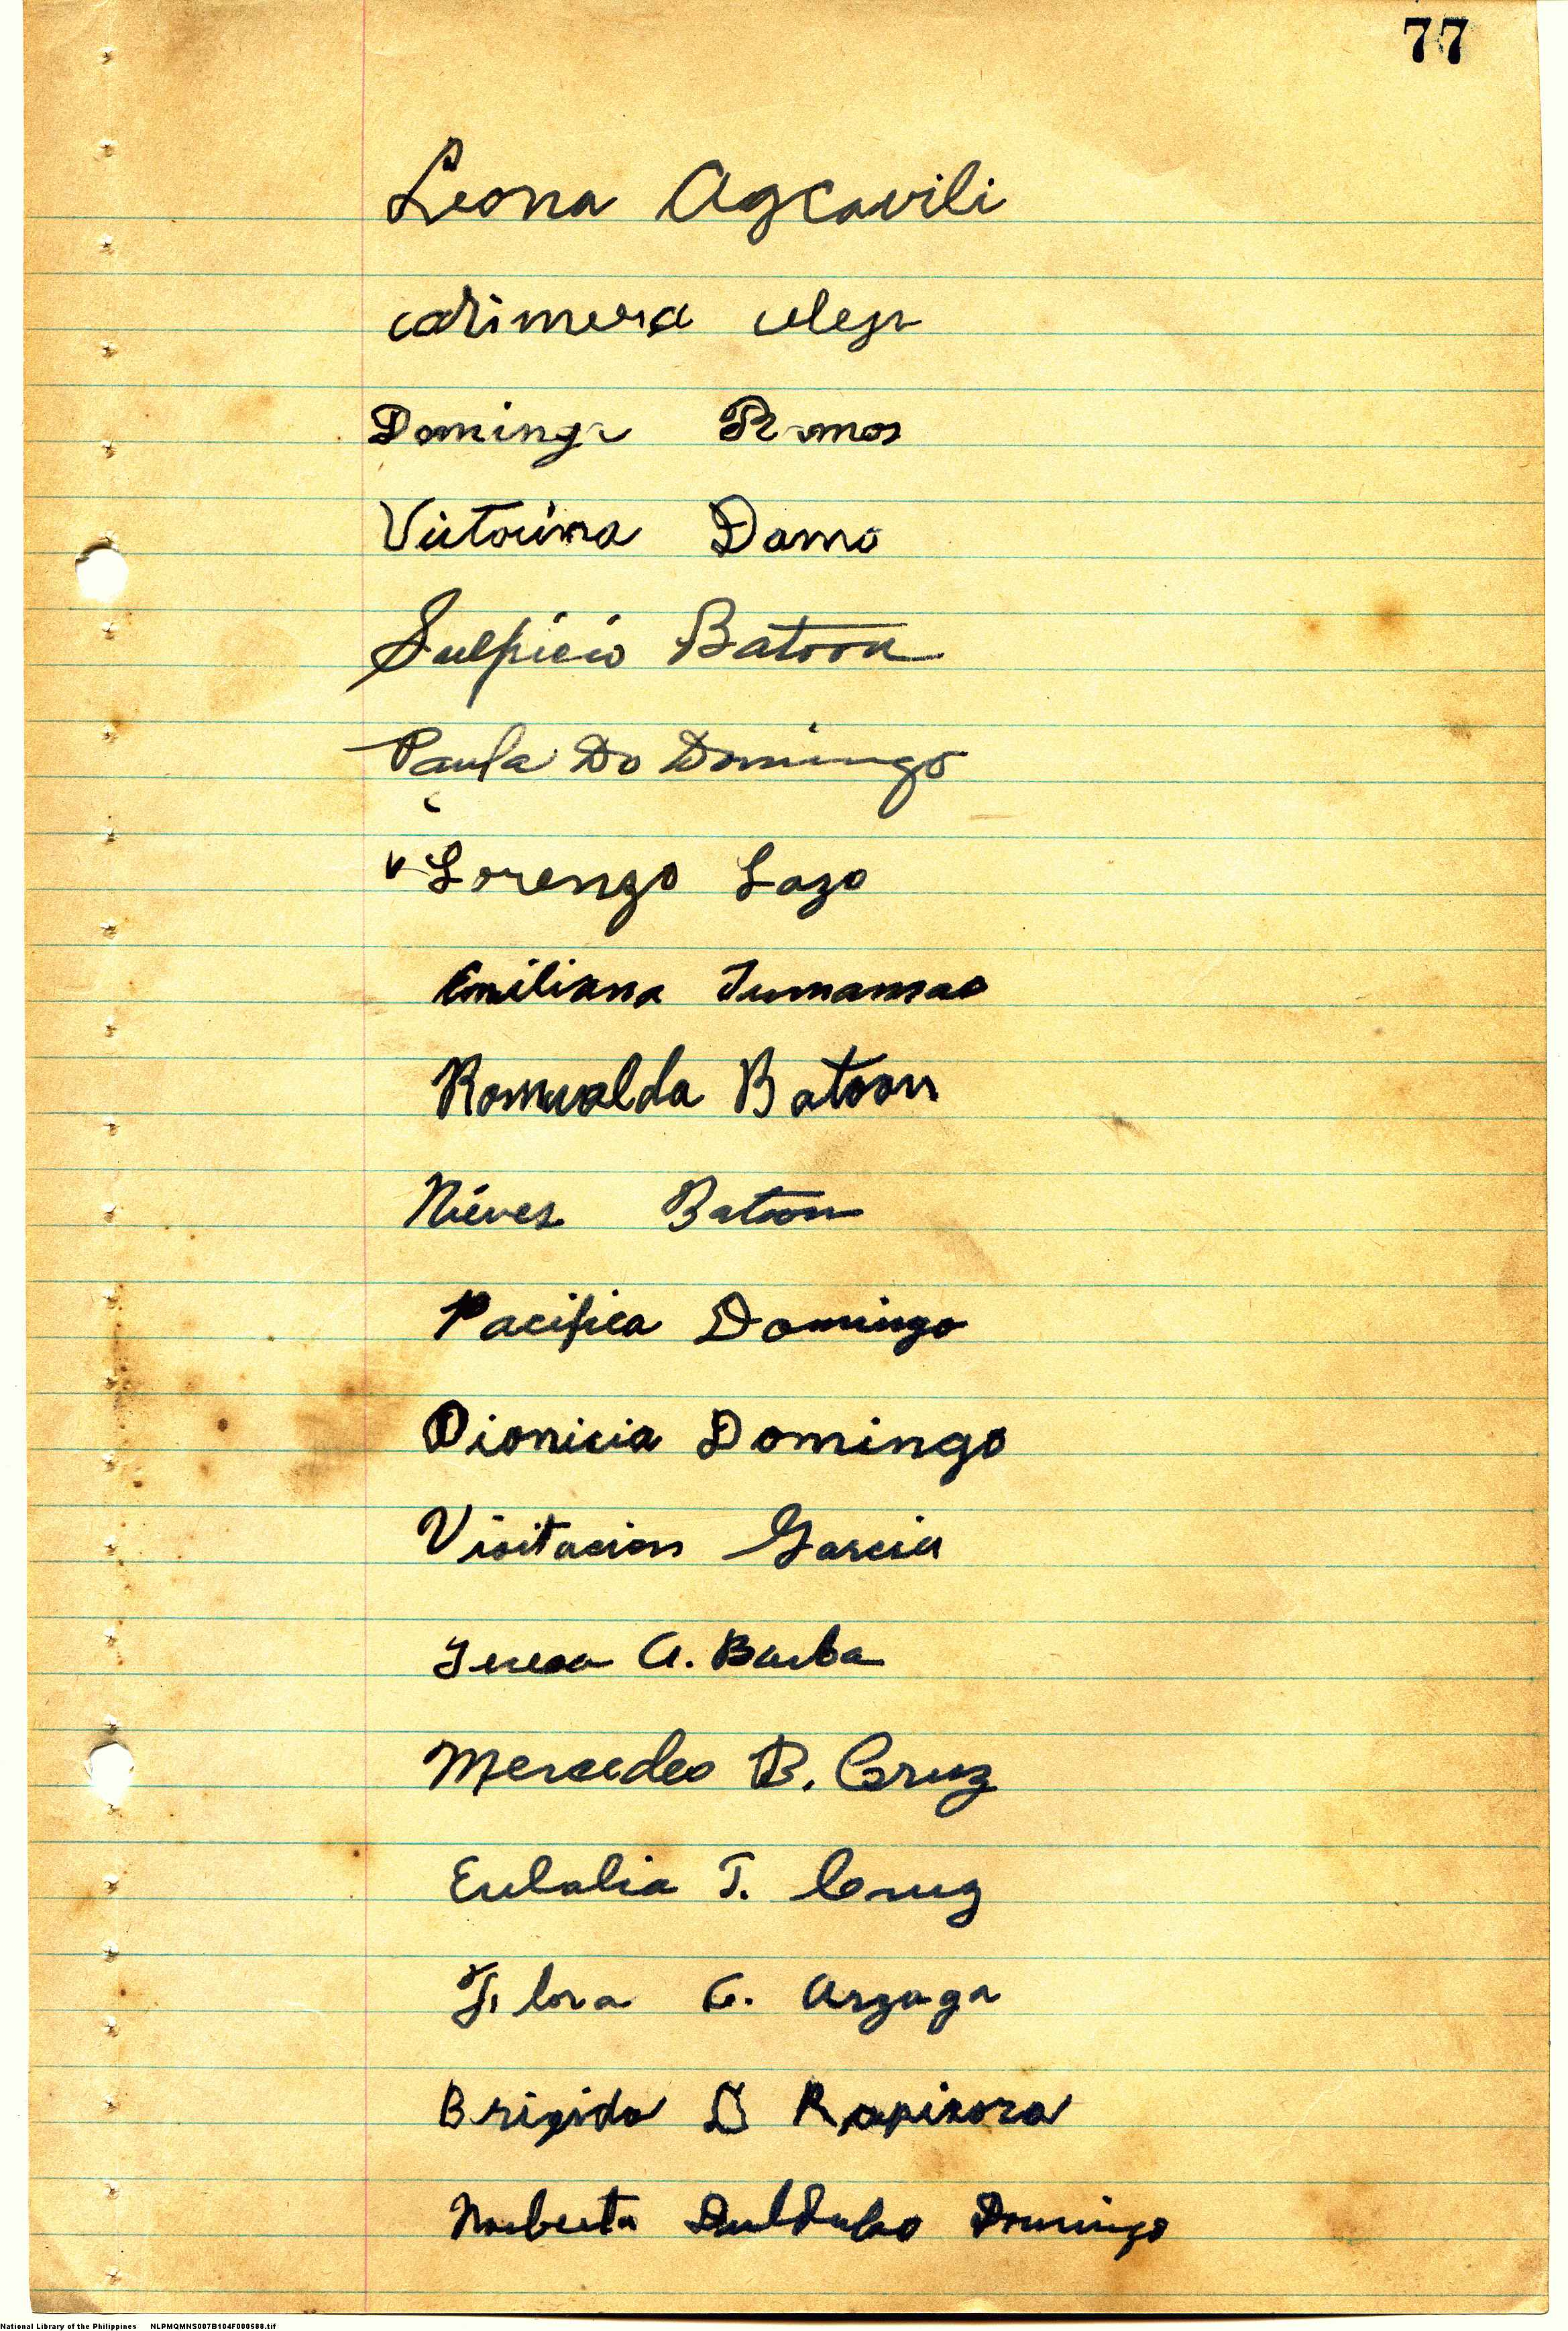 77
Leona Agcavili
Dominga Ramos
Victorina Damo
Sulpicio Batoon
Paula Do Domingo
Lorenzo Lazo
Emiliana Tumamao
Romualda Batoon
Nieves Batoon
Pacifica Domingo
Dionicia Domingo
Visitacion Garcia
Teresa A. Barba
Mercedes B. Cruz
Eulalia T. Cruz
Flora G. Arzaga
Brigida D Rapisora
Norberta Duldulao Domingo
National Library of the Philippines NLPMQMNS007B104F000588.tif